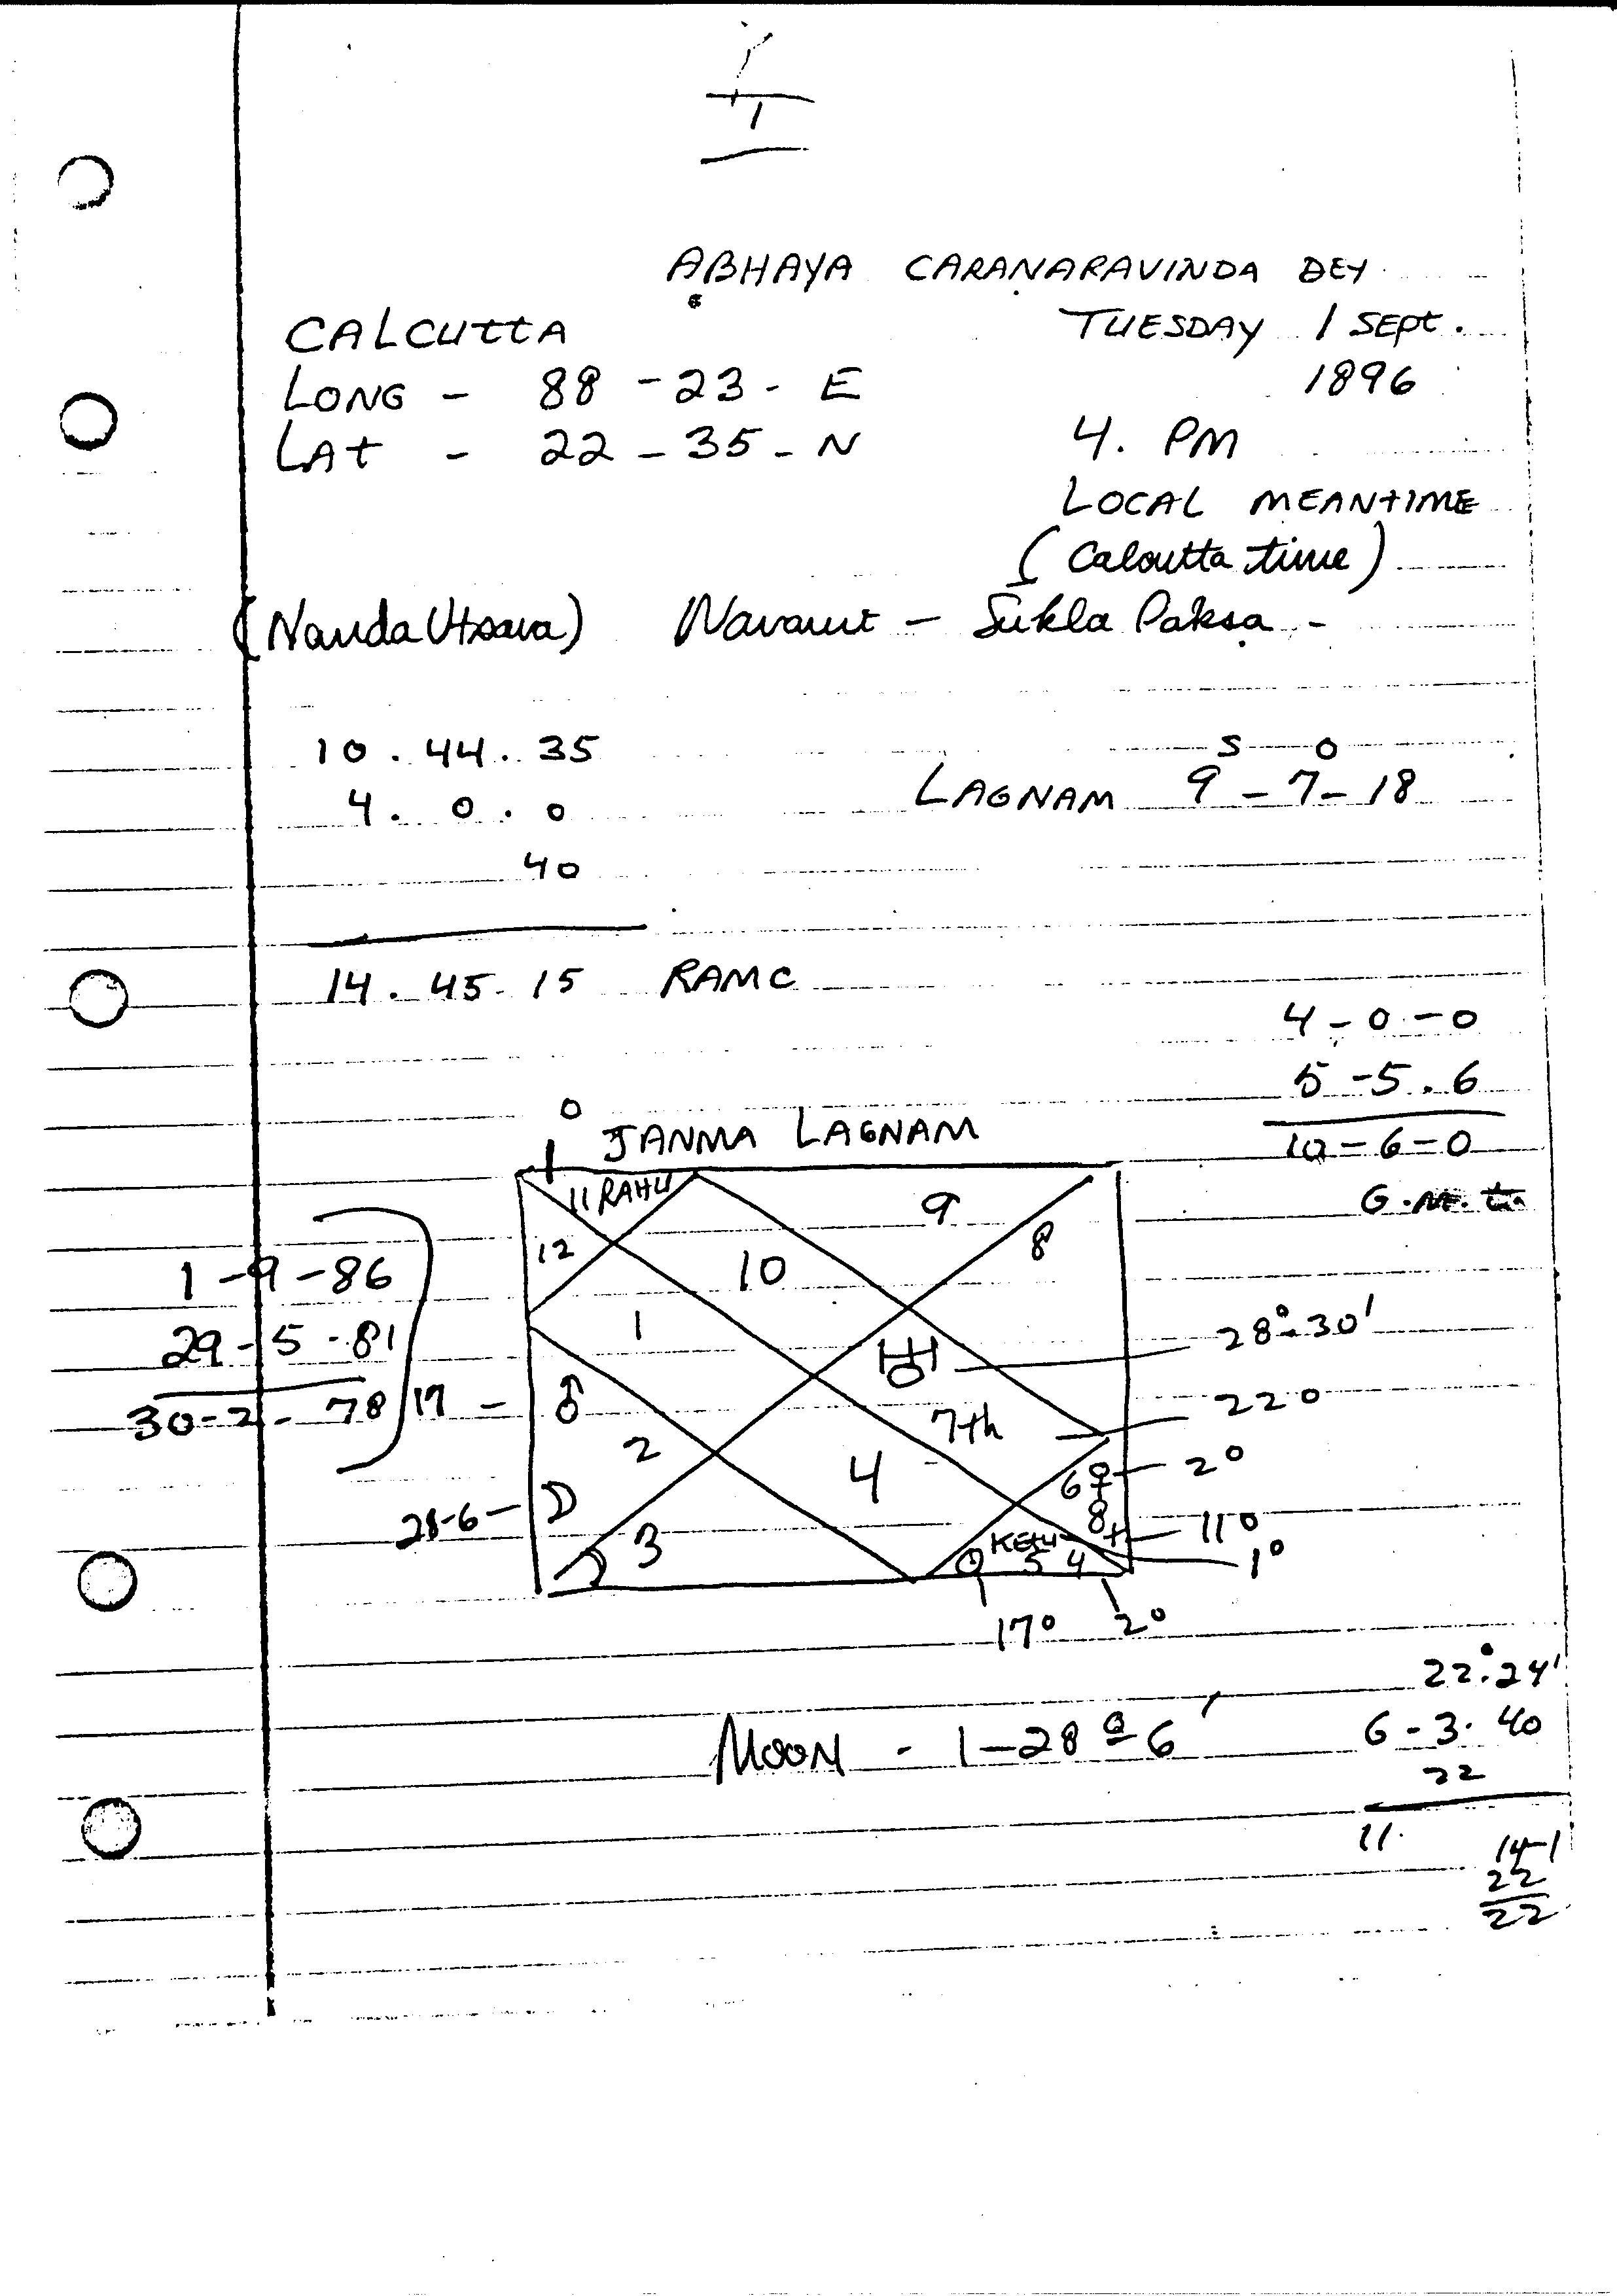 1
ABHAYA CARANARAVINDA DEY
CALCUTTA TUESDAY 1 SEPT.
LONG - 88 - 23 - E 1896
LAT - 22 - 35 - N 4. PM
LOCAL MEANTIME
(Calcutta time)
(Nanda Utsava) - Sukla Paksa -
10 . 44 . 35 S 0
4 . 0 . 0 LAGNAM 9 - 7 - 18
40
14 . 45 - 15 RAMC
4 - 0 - 0
5 - 5 . 6
0 JANMA LAGNAM
10 - 6 - 0
G.M.
11 RAHU 9
12 10 8
1 - 9 - 86
1 28° 30'
29 - 5 - 81
30 - 2 - 78 17 - ♂ 7th 220
2 4 6 ♀ 2°
28-6 - D 8 11°
3 KETU 1°
5 4
17° 2°
22° 24'
MOON - 1 - 28° 6' 6 - 3 . 40
22
11. 14-1
22
22